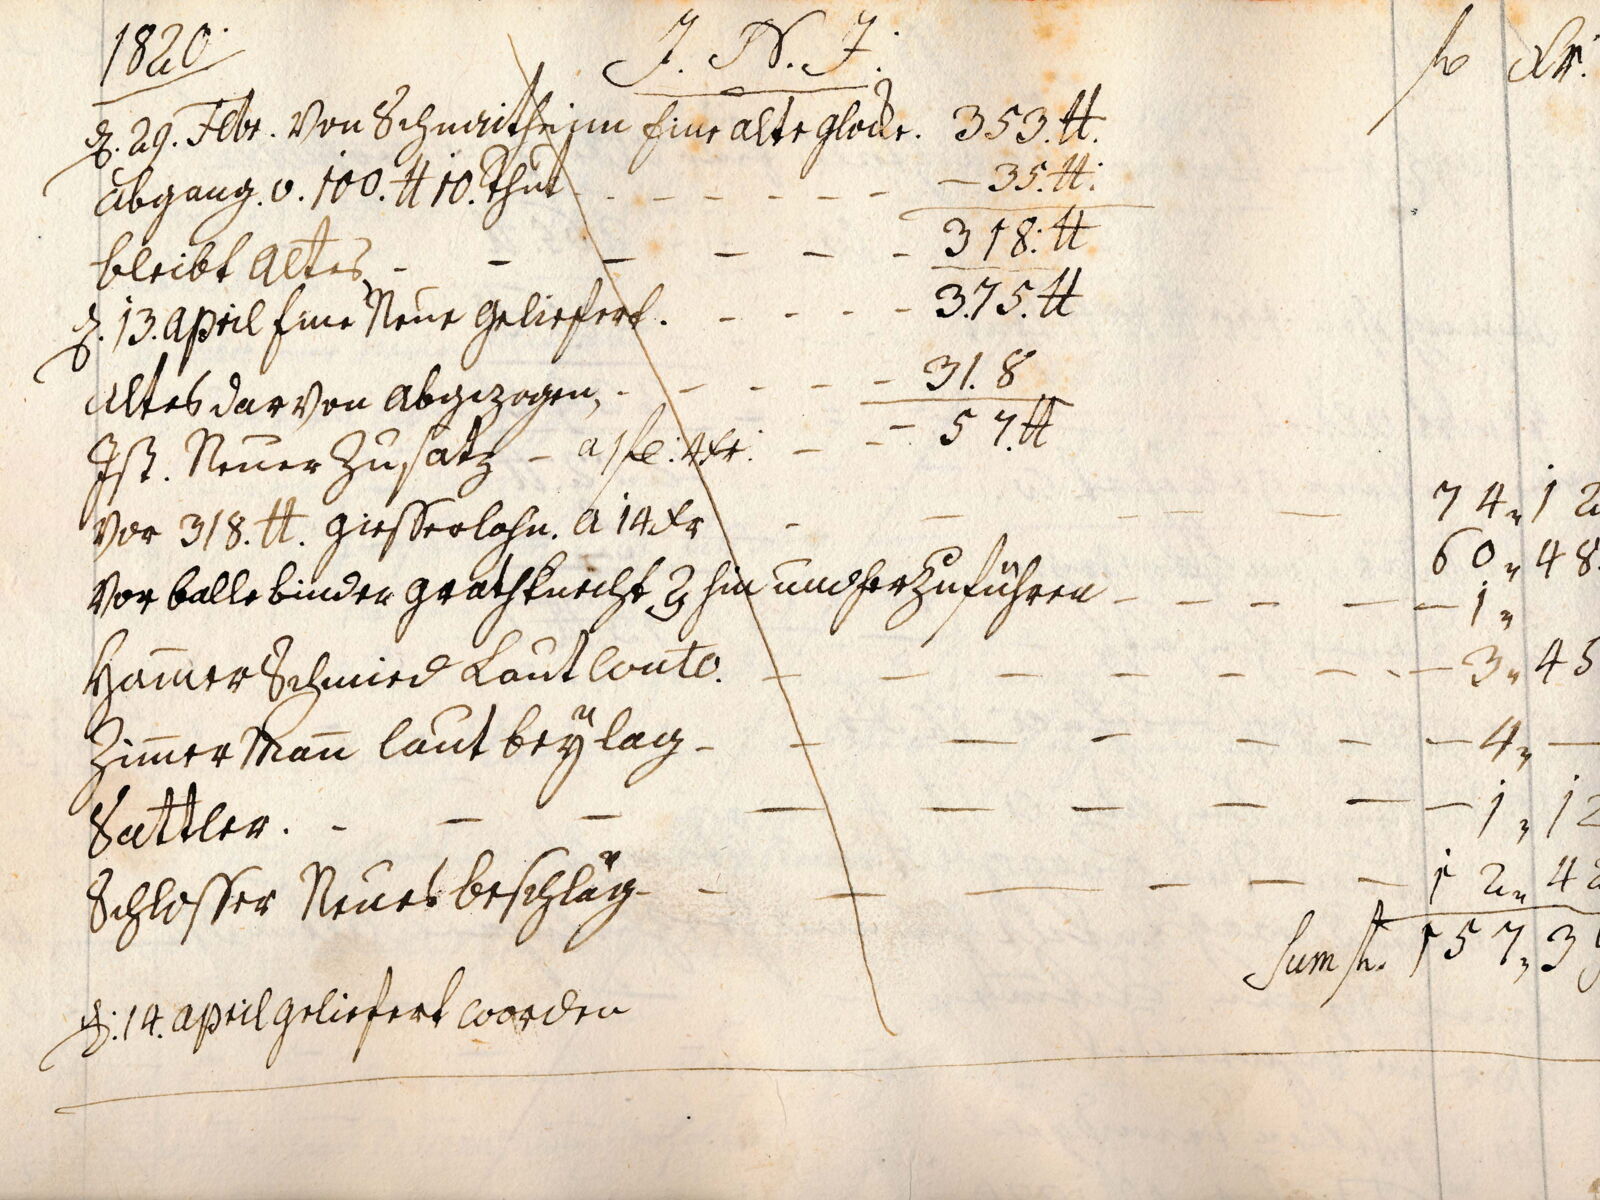 1820. J. N. J. fl. Xr.
d. 29. Febr. Von Schnaitheim Eine alte Glocke. 353.℔.
Abgang. v. 100. ℔ 10. Thut - - - - - - 35. ℔.
bleibt Altes, - - - - - - 318. ℔
d. 13. April Eine Neue Geliefert. - - - - 375. ℔
Altes darvon Abgezogen, - - - - - 318
Ist. Neuer Zusatz - a 1 fl: Xr. - - - 57. ℔
Vor 318. ℔. Giesserlohn. a 14 Xr - - - - 74 " 12
60 " 48.
Vor balle binder hin und her Zuführen - - - - - 1 "
Ham̅er Schmied Laut Conto. - - - - - - 3 " 45
Zim̅er Man̅ laut beÿlag - - - - - - - 4 " —
Sattler. - - - - - - - - 1 " 12
Schlosser Neues beschläg - - - - - - 12 " 42
Sum fl. 157 " 39
d. 14. April geliefert worden